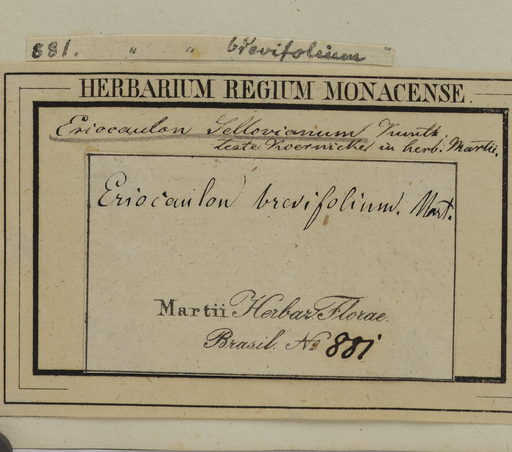 881. " " brevifolium
HERBARIUM REGIUM MONACENSE.
Eriocaulon Sellovianum Kunth.
teste Koernicke in herb. Martii.
Eriocaulon brevifolium. Mart.
Martii Herbar. Florae.
Brasil. No 881